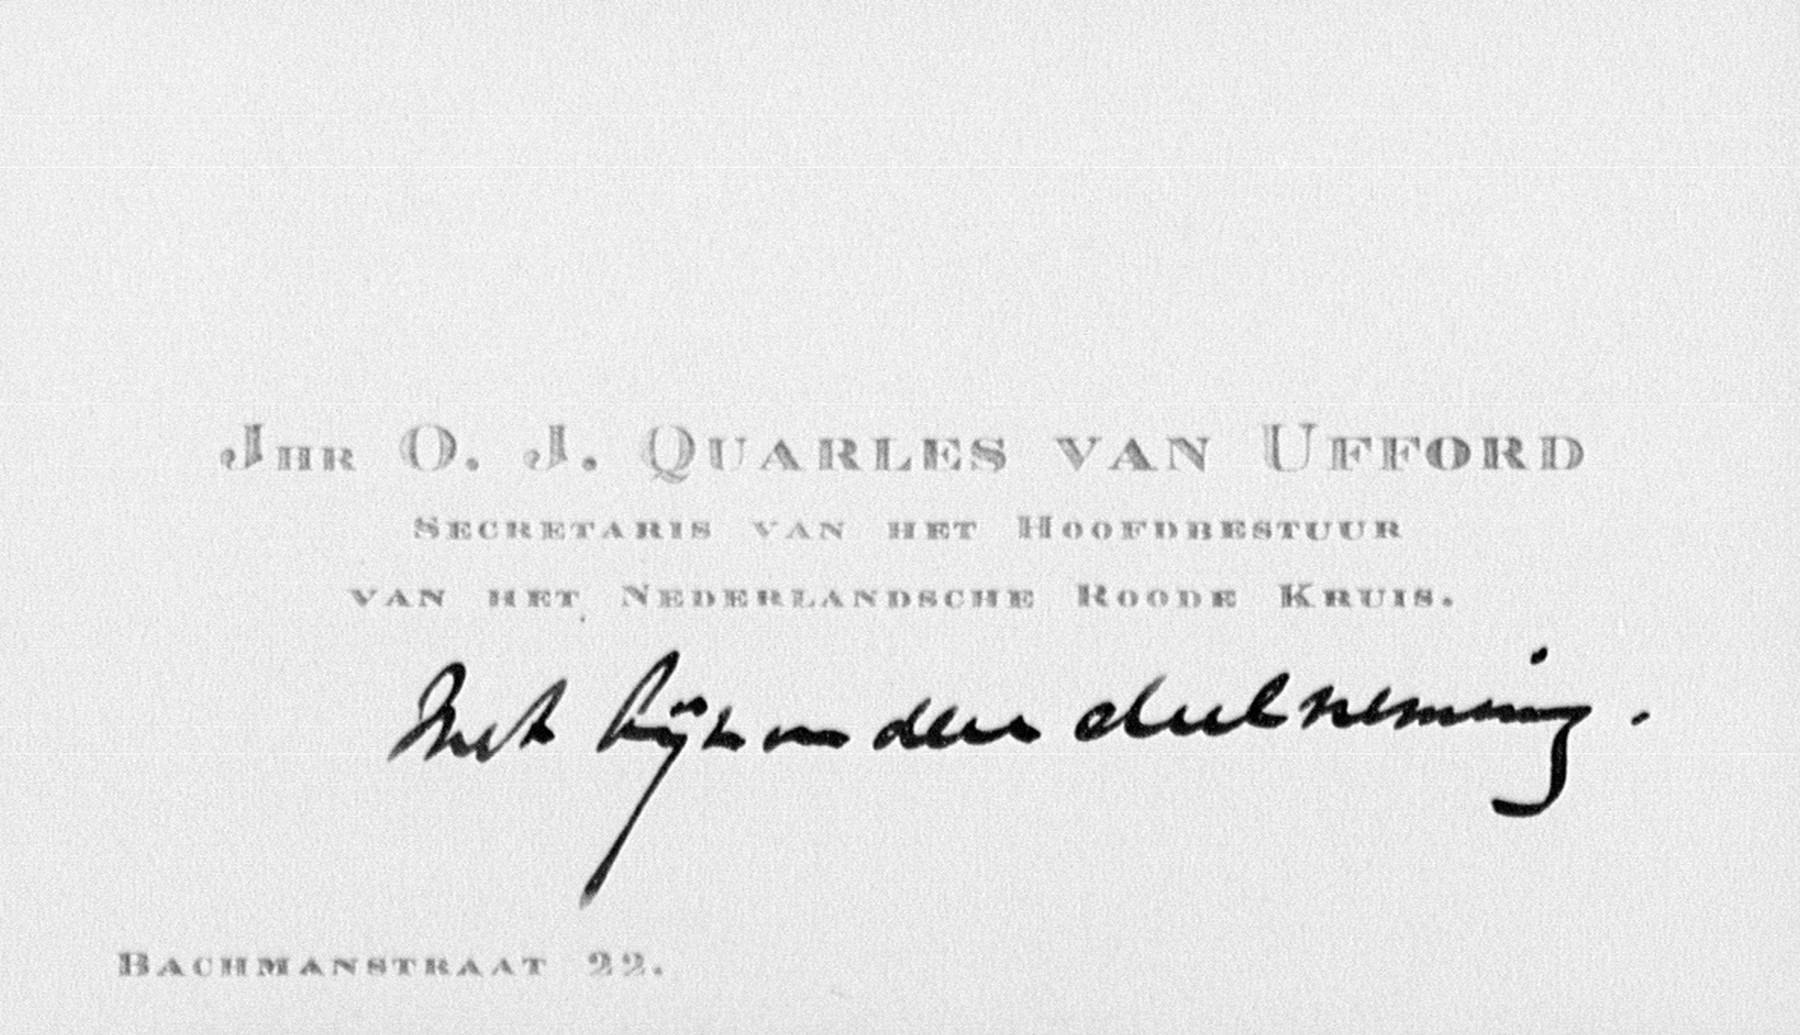 Jhr O. J. Quarles van Ufford
Secretaris van het Hoofdbestuur
van het Nederlandsche Roode Kruis.
Met bijzondere deelneming.
Bachmanstraat 22.